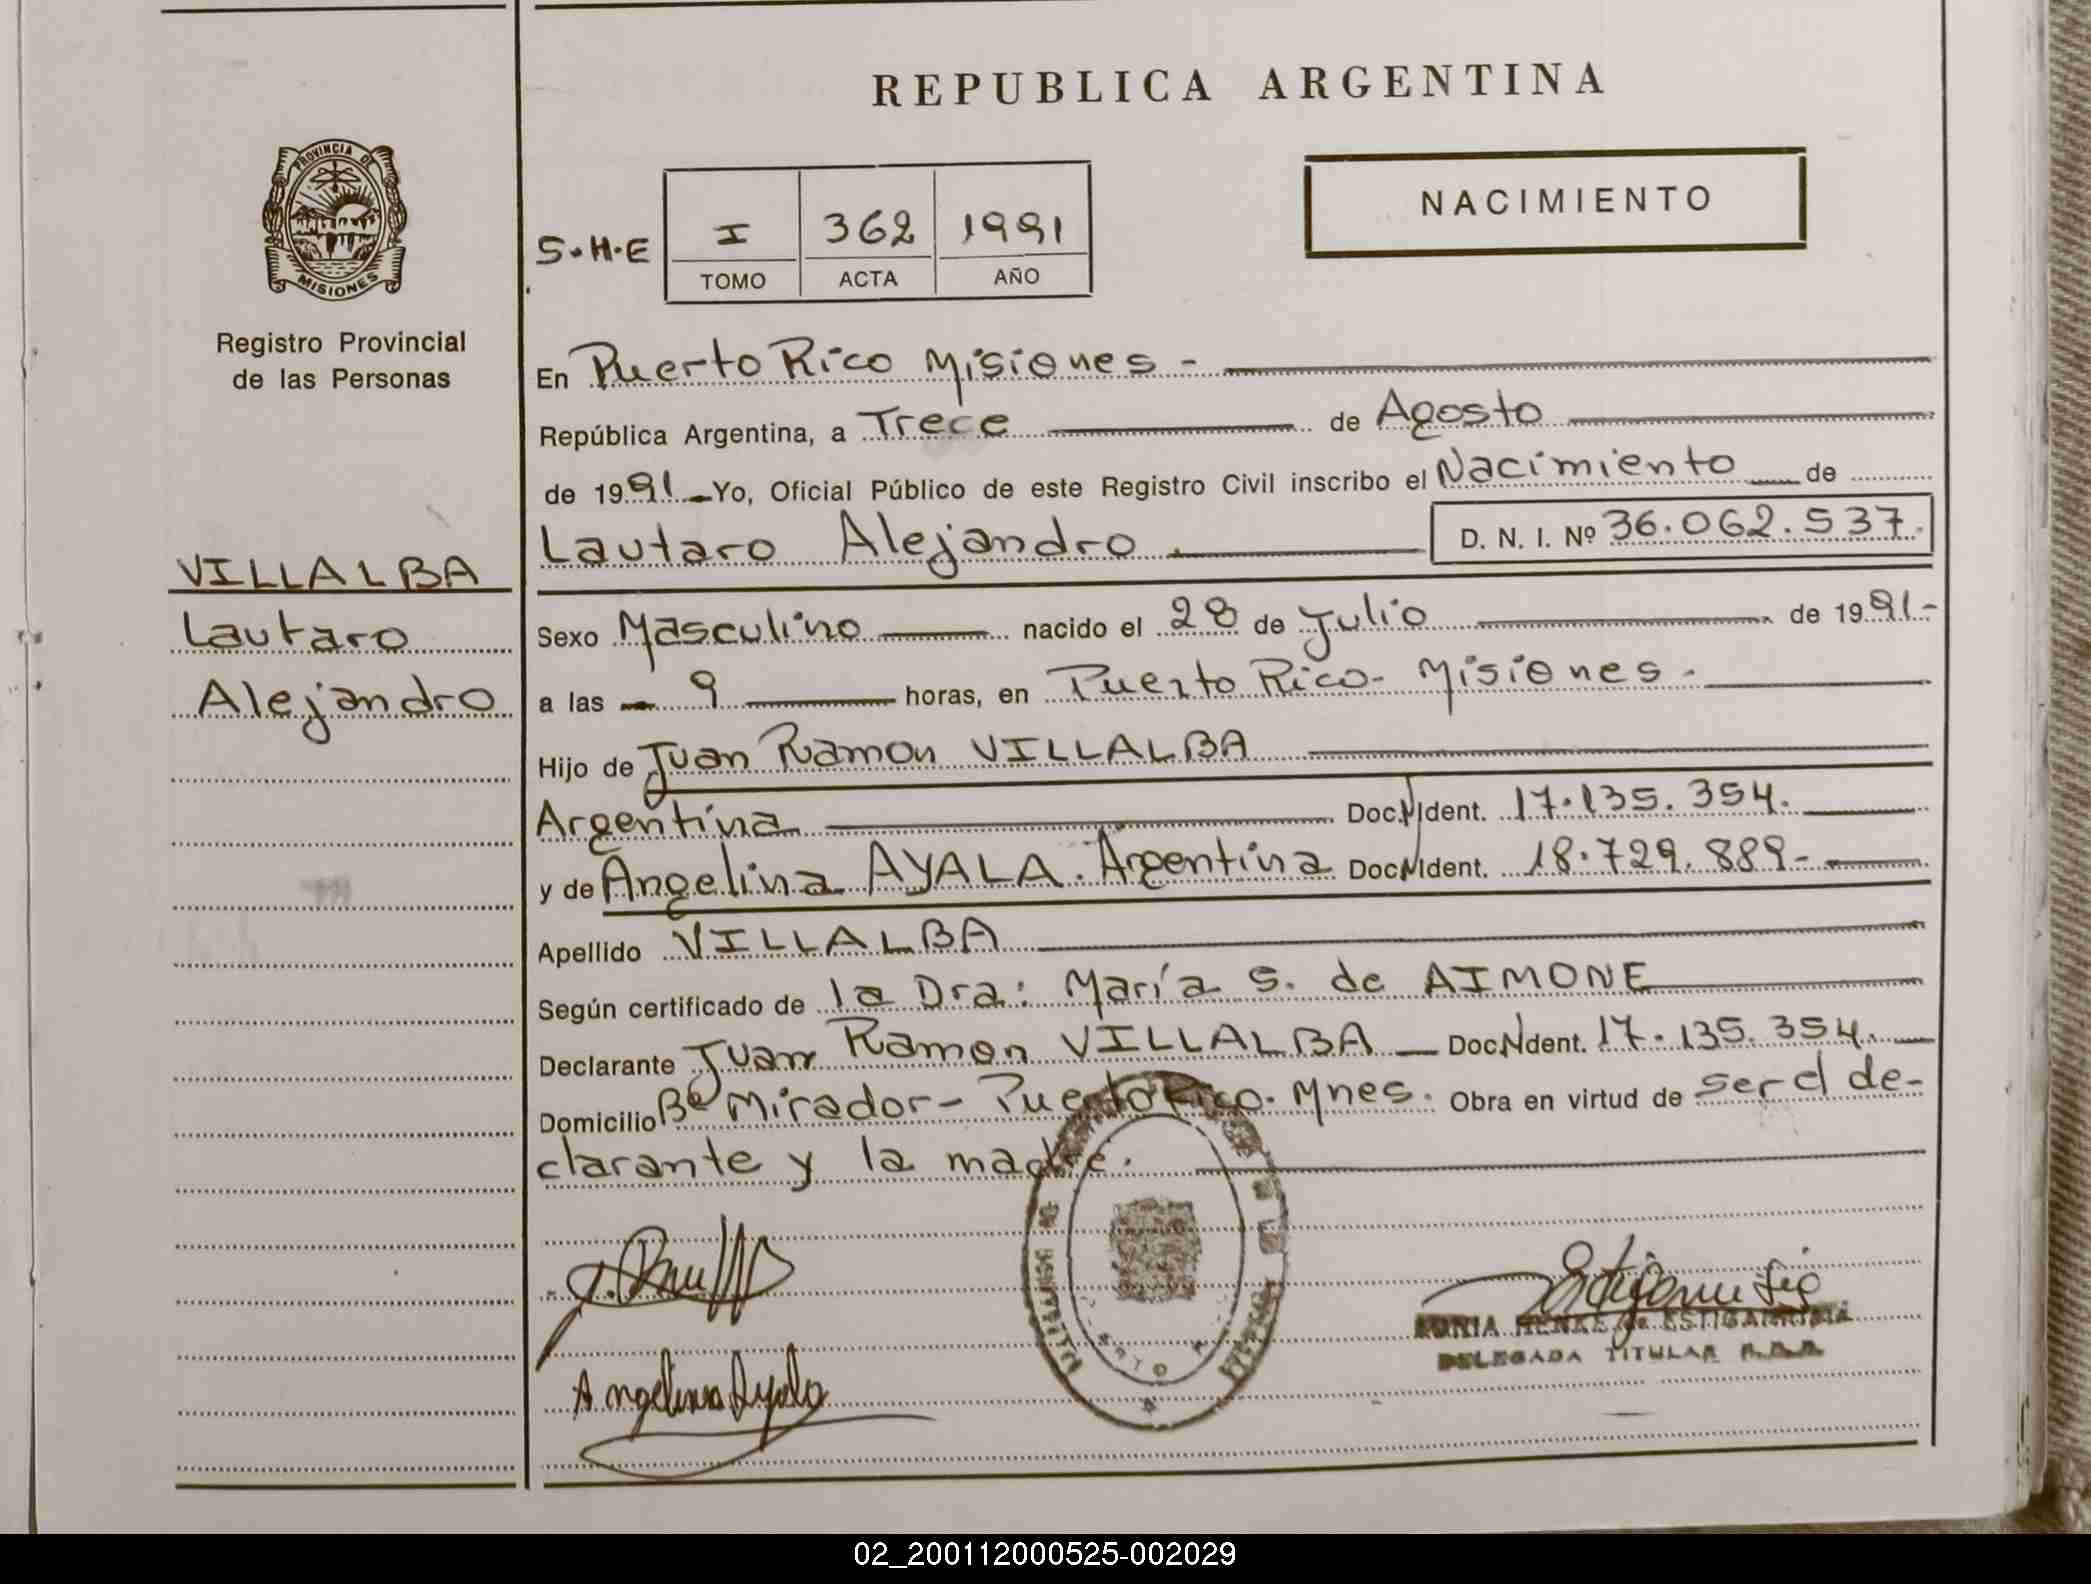 REPUBLICA ARGENTINA
PROVINCIA DE
MISIONES
Registro Provincial
de las Personas
NACIMIENTO
S.H.E
I 362 1991
TOMO ACTA AÑO
En Puerto Rico Misiones -
República Argentina, a Trece de Agosto
de 1991 Yo, Oficial Público de este Registro Civil inscribo el Nacimiento de
Lautaro Alejandro D. N. I. Nº 36.062.537.
VILLALBA
Lautaro
Alejandro
Sexo Masculino nacido el 28 de Julio de 1991-
a las 9 horas, en Puerto Rico- Misiones-
Hijo de Juan Ramon VILLALBA
Argentina Doc.N Ident. 17.135.354.
y de Angelina AYALA. Argentina Doc.N Ident. 18.729.889-
Apellido VILLALBA
Según certificado de la Dra: María S. de AIMONE
Declarante Juan Ramon VILLALBA Doc.N Ident. 17.135.354.
Domicilio Bº Mirador- Puerto Rico. Mnes. Obra en virtud de ser el de-
clarante y la madre.
Angelina Ayala
HENKE de ESTIGARRIBIA
DELEGADA TITULAR
02_200112000525-002029